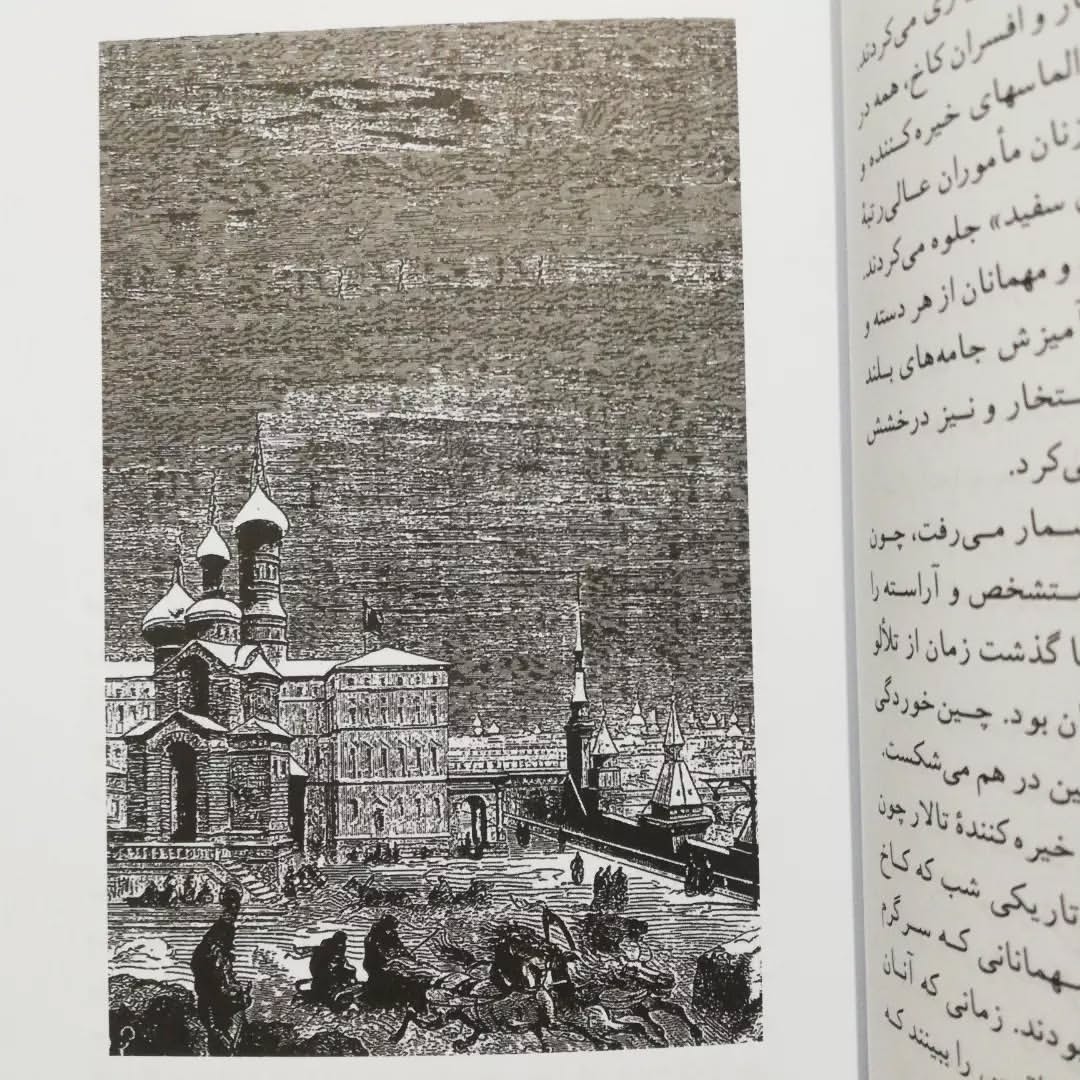 می‌کردند.
و افسران کاخ، همه در
الماسهای خیره‌کننده و
زنان مأموران عالی‌رتبهٔ
سفید» جلوه می‌کردند.
و مهمانان از هر دسته و
آمیزش جامه‌های بلند
و نیز درخشش
می‌رفت، چون
و آراسته را
گذشت زمان از تلألو
بود. چین‌خوردگی
در هم می‌شکست.
خیره‌کنندهٔ تالار چون
تاریکی شب که کاخ
که سرگرم
زمانی که آنان
را ببینند که